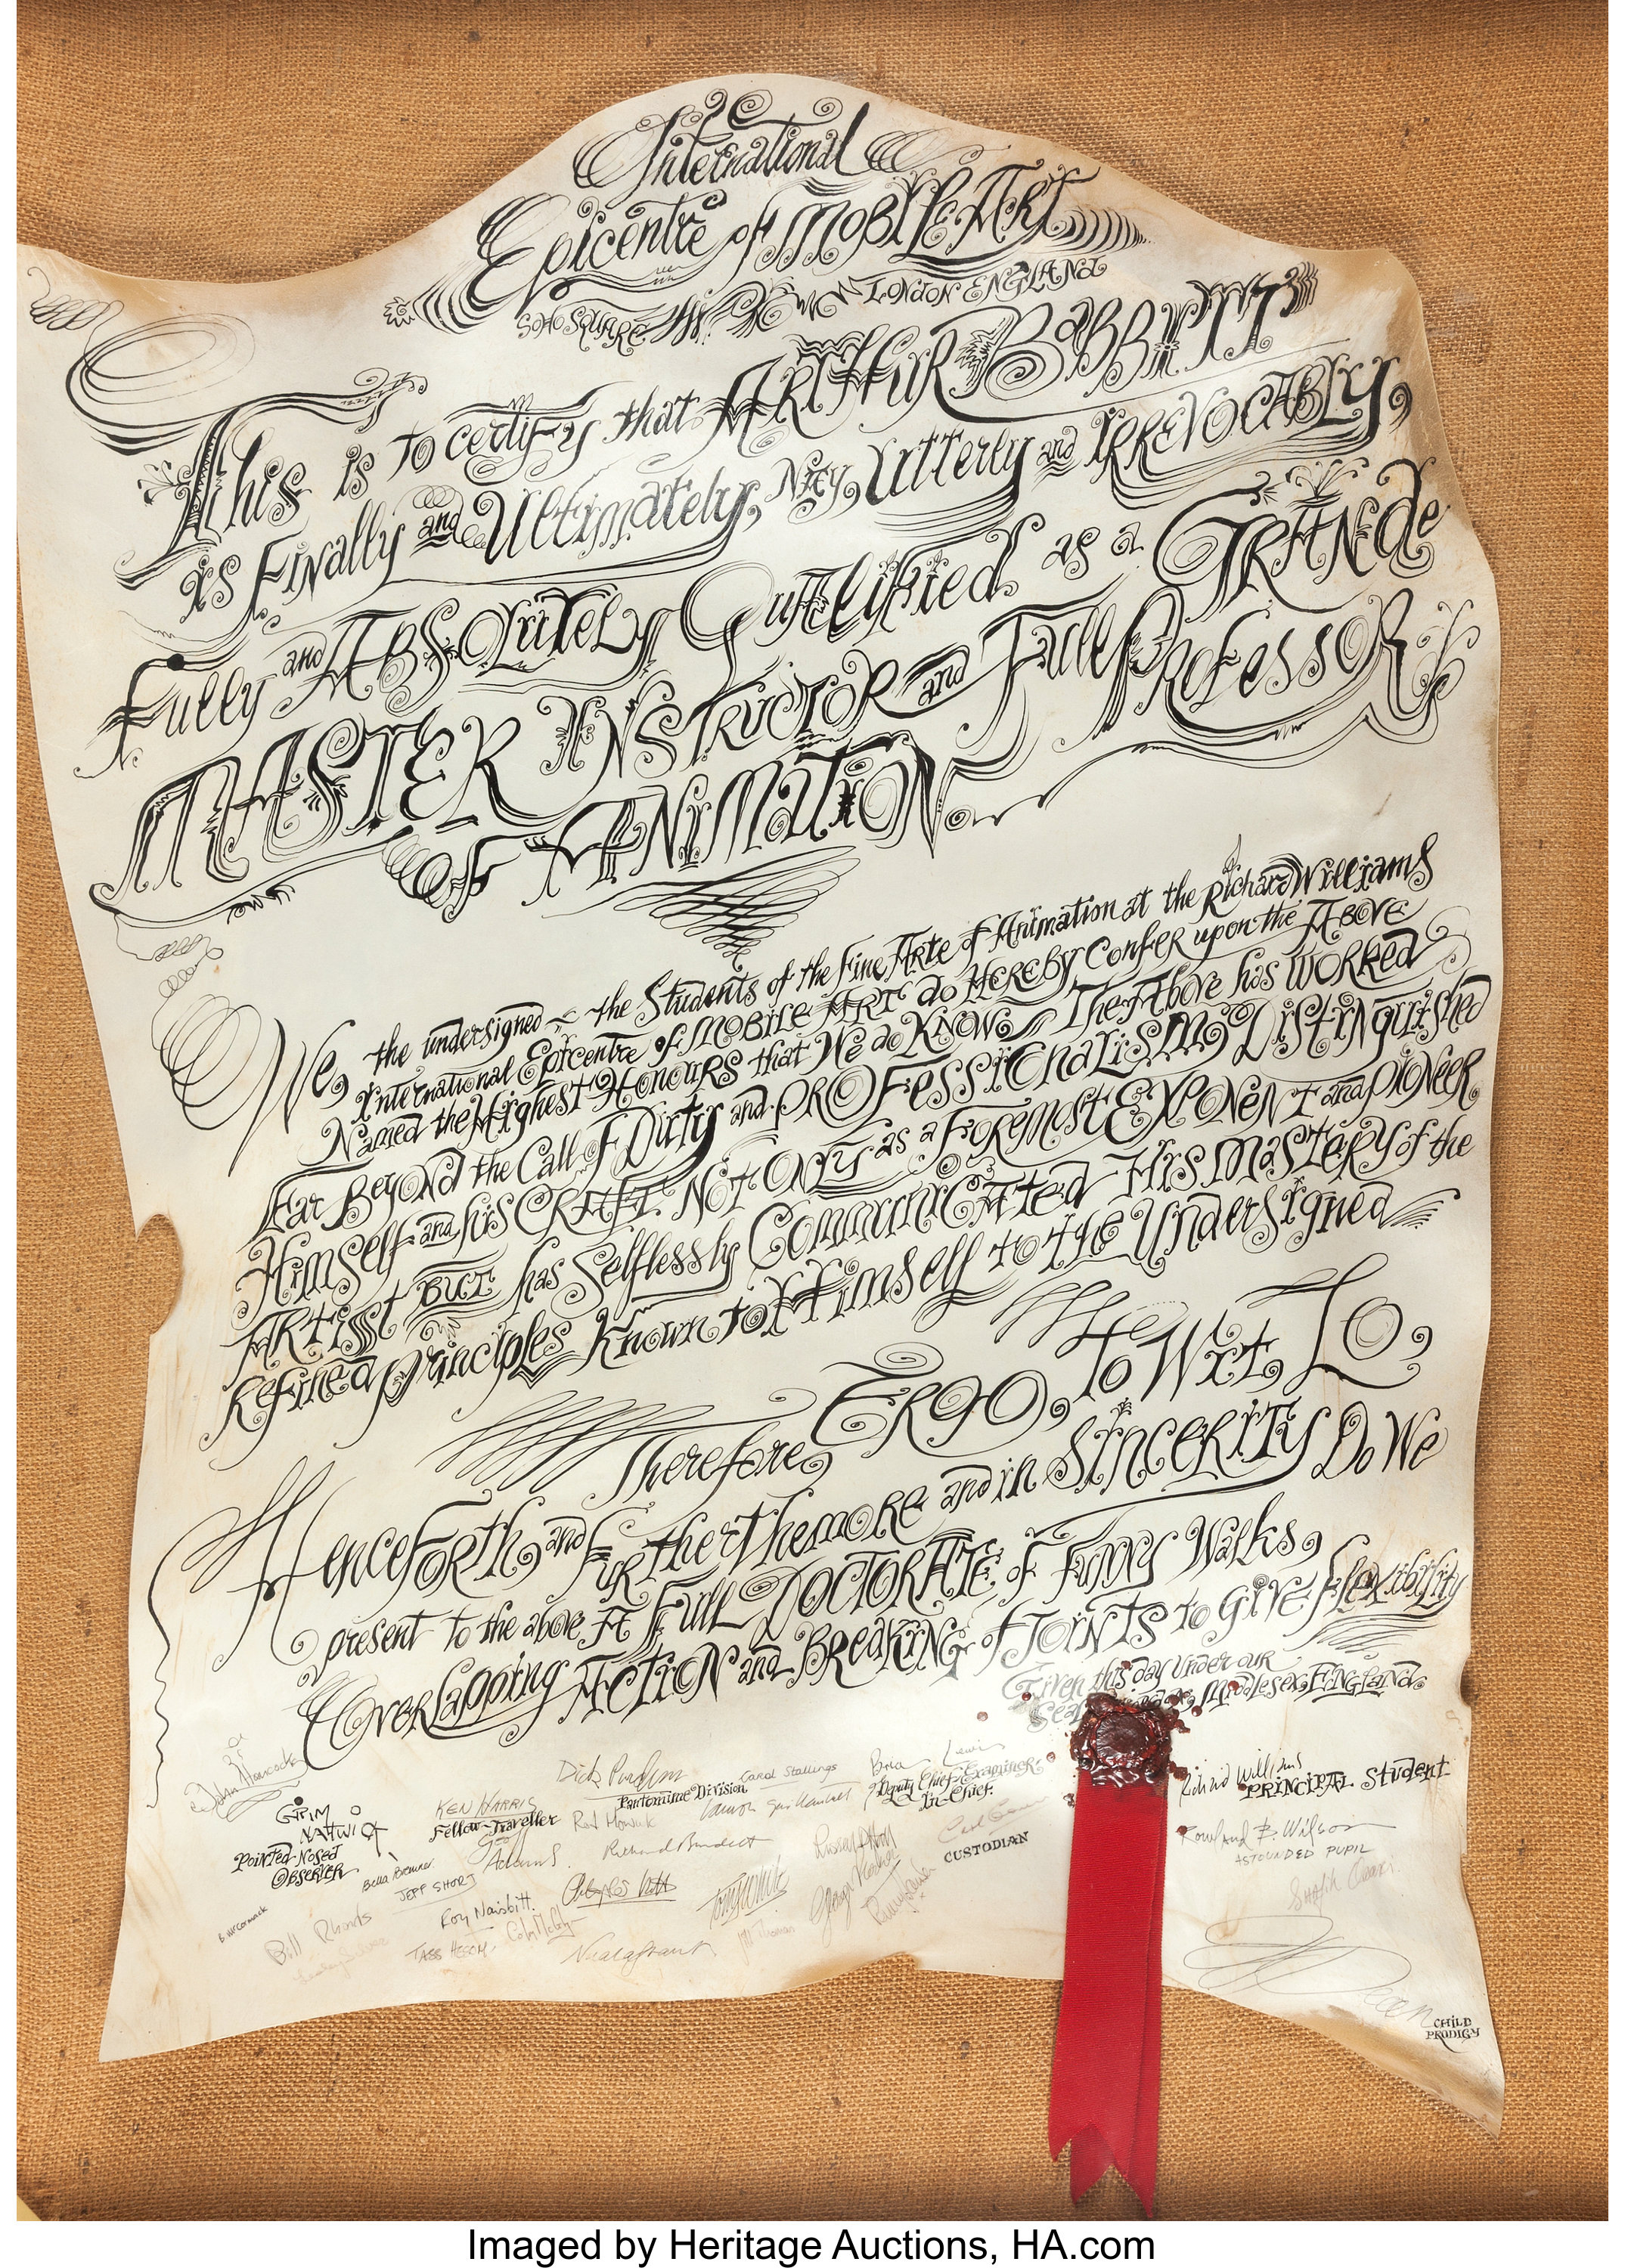 International
Epicentre of MOBILE ART
SOHO SQUARE LONDON ENGLAND
This is to certify that ARTHUR BABBITT
is Finally and Ultimately, Nay, Utterly and IRREVOCABLY,
Fully and ABSOLUTELY Qualified as a GRANde
MASTER INSTRUCTOR and Full PROFESSOR
OF ANIMATION
We, the undersigned – the Students of the Fine Arte of Animation at the Richard Williams
International Epicentre of MOBILE ART do HEREBY Confer upon the ABOVE
Named the Highest Honours that We do KNOW. The Above has WORKED
Far BEYOND the Call of Duty and PROFESSIONALISM, Distinguished
Himself and his CRAFT. NOT ONLY as a FOREMOST EXPONENT and PIONEER
ARTIST BUT has Selflessly COMMUNICATED HIS MASTERY of the
Refined principles Known to Himself to the Undersigned
Therefore, ERGO, To Wit, LO,
HenceFORTH, and FURthertheMORE and in SINCERITY Do We
present to the above A FULL DOCTORATE of Funny Walks,
Overlapping ACTION and BREAKING of JOINTS to GIVE Flexibility
Given this day Under our
Seal Middlesex, ENGLAND
John Hancock
GRIM NATWICK
POINTED-NOSED
OBSERVER
KEN HARRIS
Fellow-Traveller
Dick Purdum
Pantomime Division
Carol Stallings
Lewis
Deputy Chief-Examiner-
In-Chief.
CUSTODIAN
Richard Williams
PRINCIPAL Student
Rowland B. Wilson
ASTOUNDED PUPIL
Richard Burdett
JEFF SHORT
Roy Naisbitt
Tony White
B. McCormack
Bill Rhodes
CHILD
PRODIGY
Imaged by Heritage Auctions, HA.com